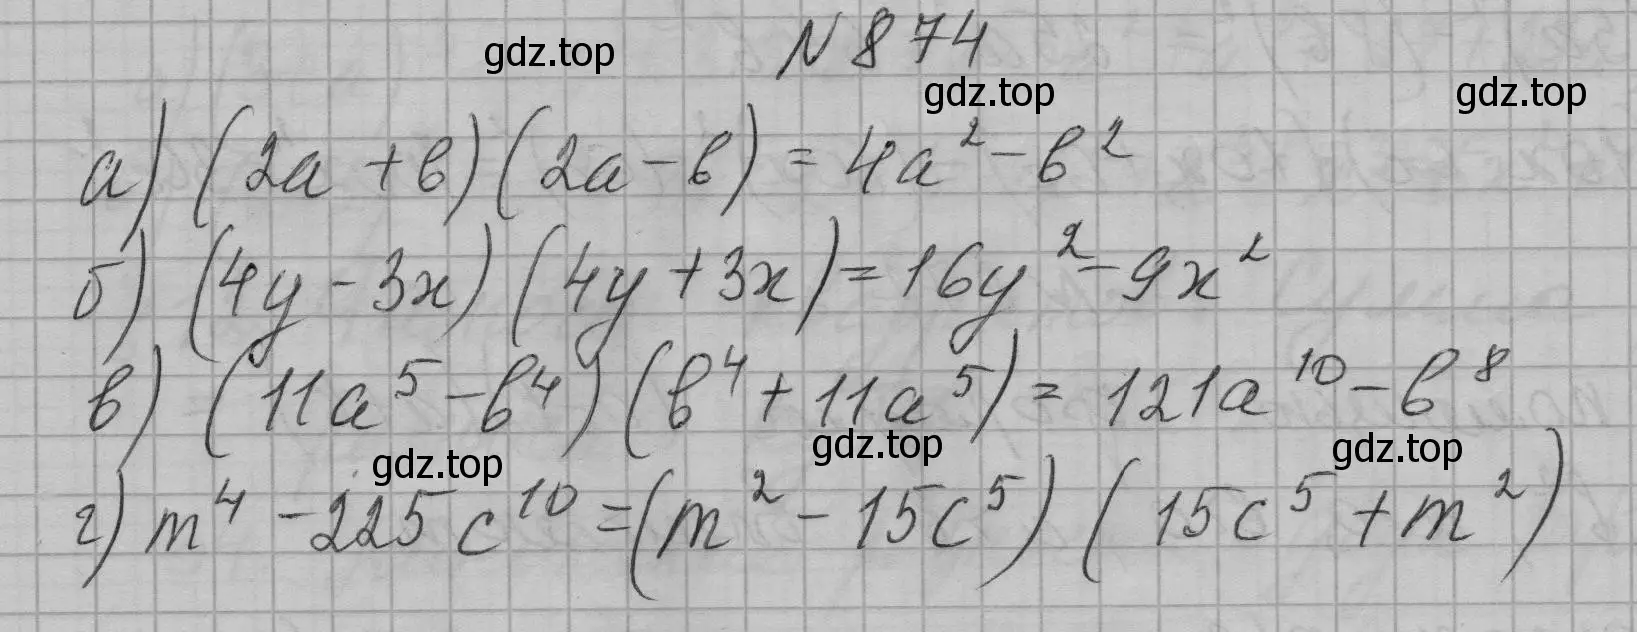 N 874
gdz.top
gdz.top
gdz.top
а) (2a + b) (2a - b) = 4a² - b²
б) (4y - 3x) (4y + 3x) = 16y² - 9x²
в) (11a⁵ - b⁴) (b⁴ + 11a⁵) = 121a¹⁰ - b⁸
gdz.top
gdz.top
gdz.top
г) m⁴ - 225c¹⁰ = (m² - 15c⁵) (15c⁵ + m²)